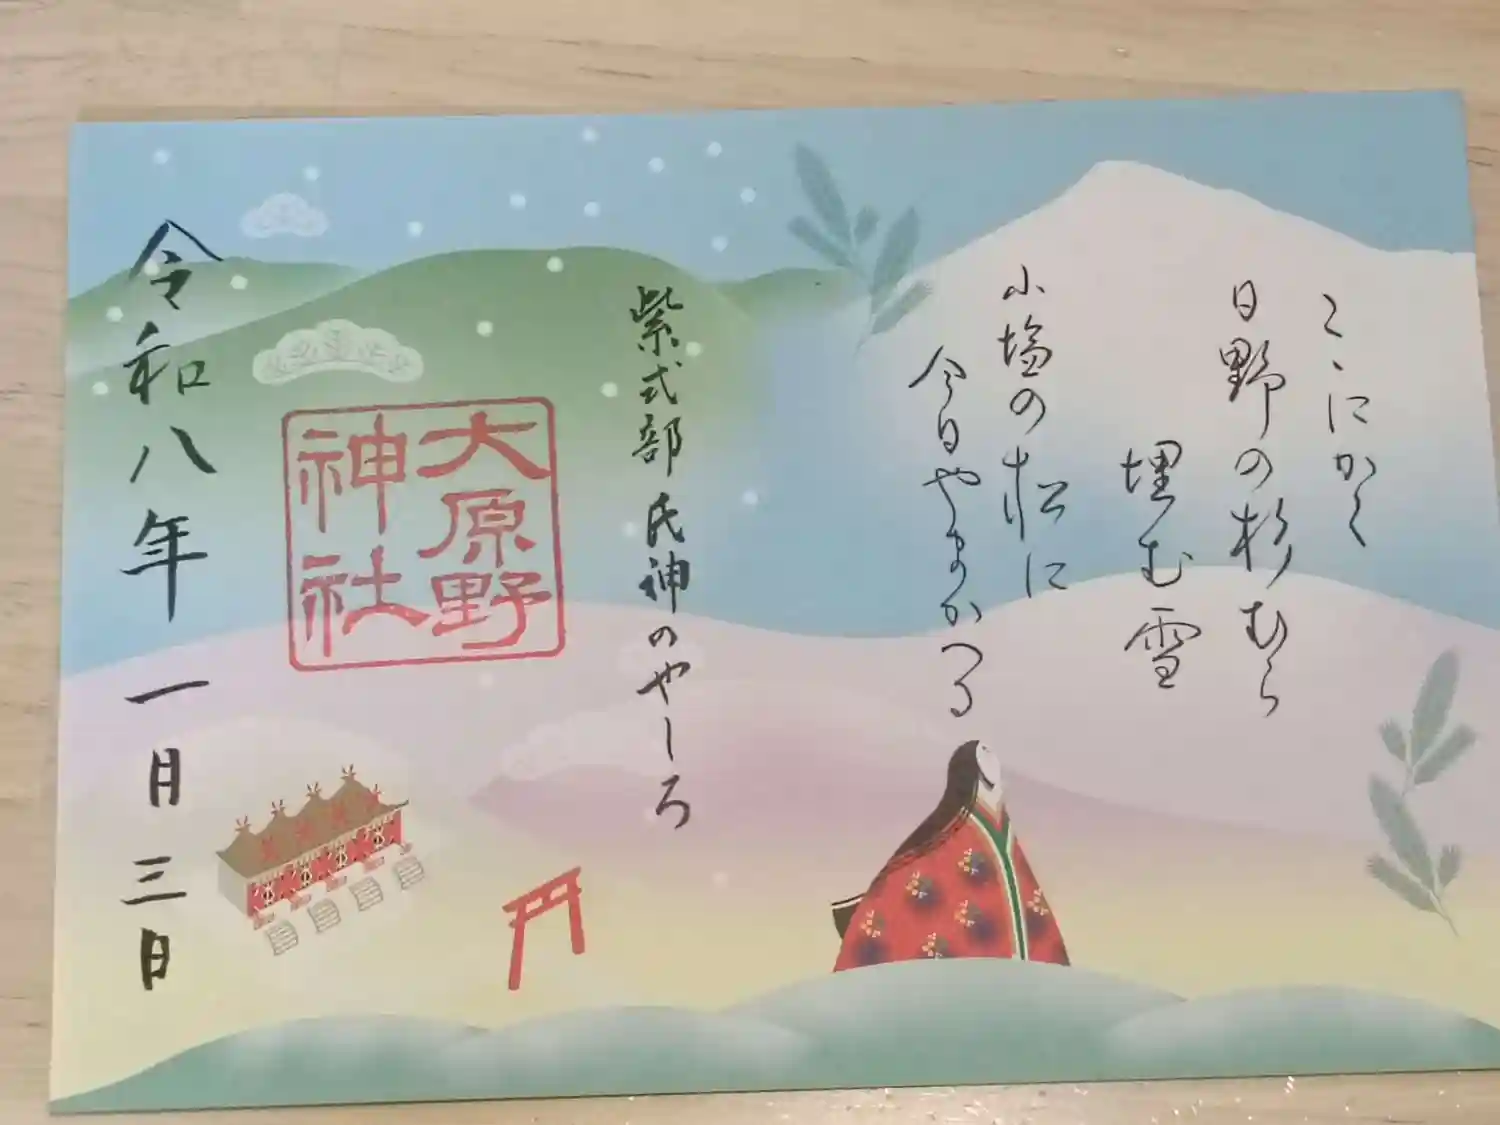 こゝにかく
日野の杉むら
埋む雪
小塩の松に
今日やまがへる
紫式部 氏神のやしろ
大原野
神社
令和八年一月三日